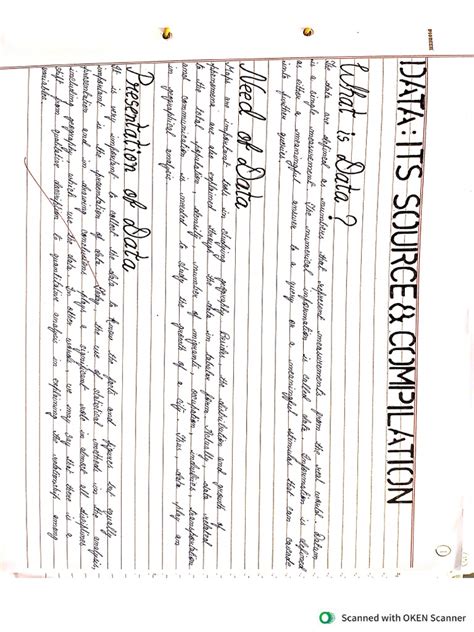 DATA: ITS SOURCE & COMPILATION
What is Data?
The data are defined as numbers that represent measurements from the real world. Datum
is a single measurement. The numerical information is called data. Information is defined
as either a meaningful answer to a query or a meaningful stimulus that can cascade
into further queries.
Need of Data
Maps are important tools in studying geography. Besides, the distribution and growth of
phenomena are also explained through the data in tabular form. Actually, data related
to the total population, density, number of migrants, occupation, industries, transportation
and communication is needed to study the growth of a city. Thus, data play an
in geographical analysis.
Presentation of Data
It is very important to collect the data to know the facts and figures but equally
important is the presentation of data. Today, the use of statistical method in the analysis,
presentation and in drawing conclusions play a significant role in almost all disciplines
including geography which use the data. In other words, we may say that there is a
shift from qualitative description to quantitative analysis in explaining the relationship among
variables.
Scanned with OKEN Scanner